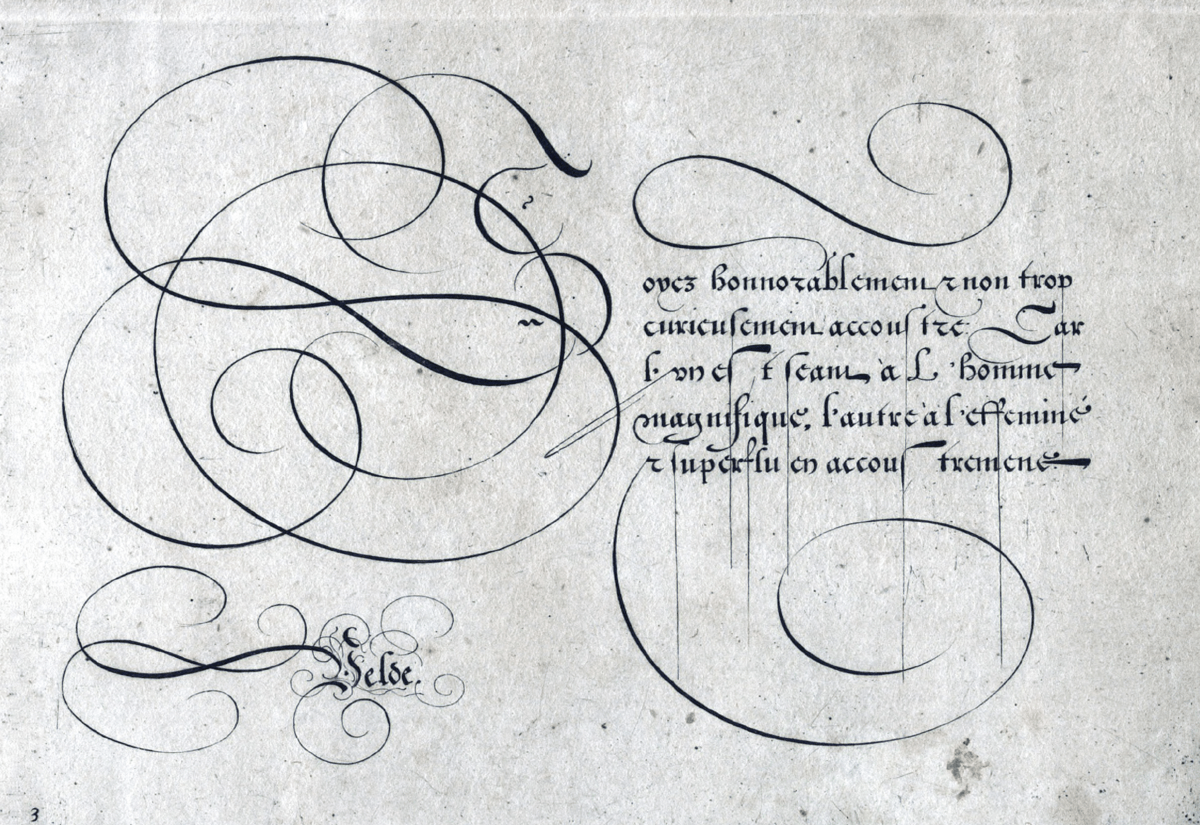 Soyez honnorablement & non trop
curieusement accoustré. Car
l'un est seant à L'homme
magnifique, l'autre à l'effeminé
& superflu en accoustrement
Velde.
3